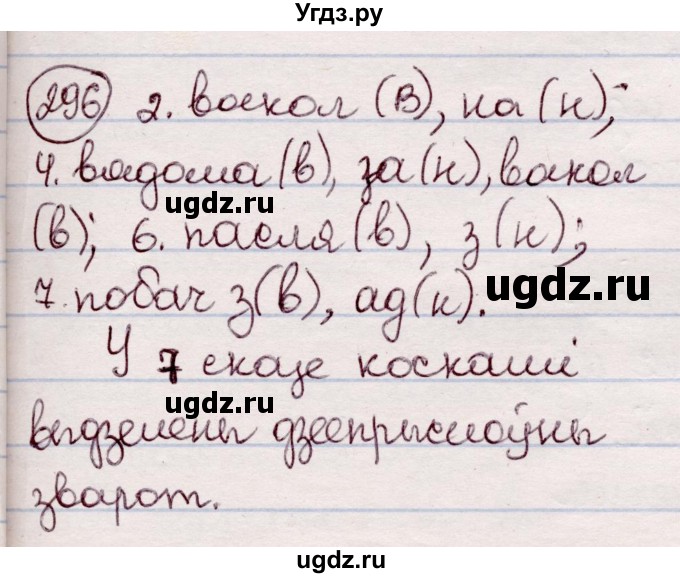 Угдз.ру
296 2. воскол (в), на (н);
4. вядома (в), за (н), вакол
(в); 6. пасля (в), з (н);
ugdz.ru
ugdz.ru
7. побач з (в), ад (н).
У 7 сказе коскамі
ugdz.ru
выдзелены дзеепрыслоўны
зварот.
ugdz.ru